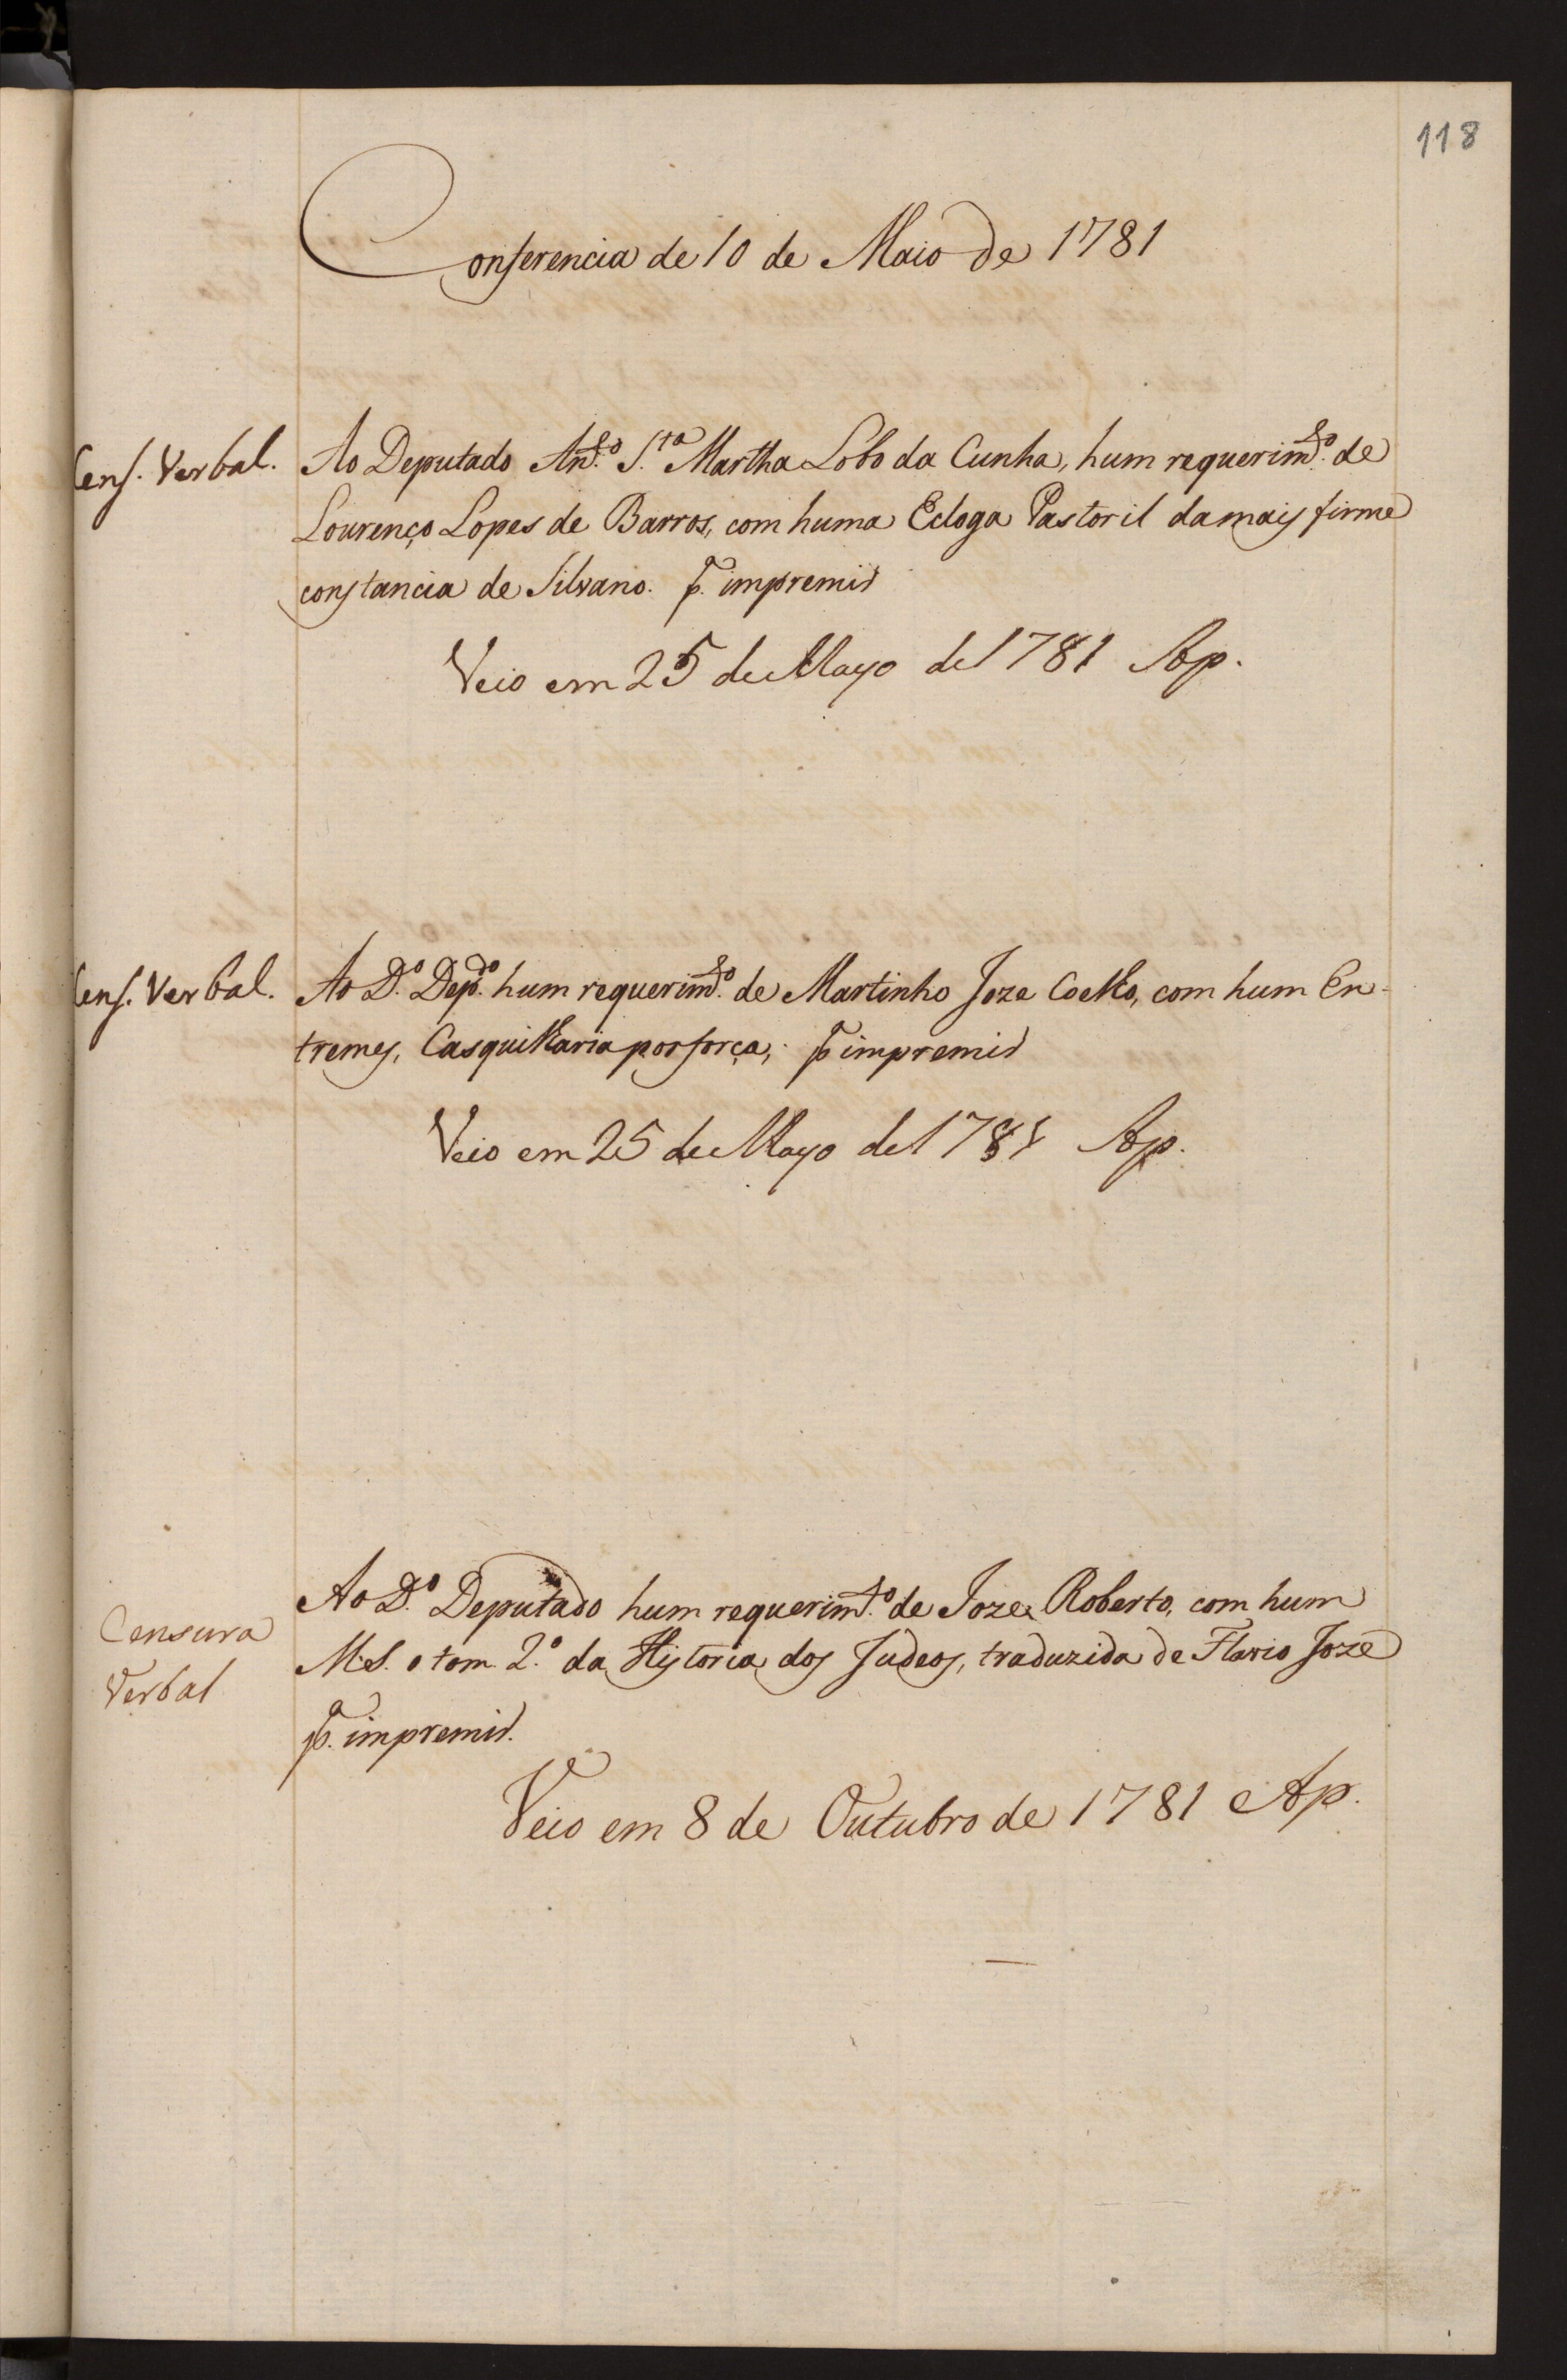 118
Conferencia de 10 de Maio de 1781
Cens. Verbal.
Ao Deputado Anto. S.ta Martha Lobo da Cunha, hum requerimto. de
Lourenço Lopes de Barros, com huma Ecloga Pastoril da mais firme
constancia de Silvano. pa. impremir
Veio em 25 de Mayo de 1781 Ap.
Cens. Verbal.
Ao D.o Depdo. hum requerimto. de Martinho Joze Coelho, com hum En-
tremes, Casquilharia por força, pa impremir
Veio em 25 de Mayo de 1781 Ap.
Censura
Verbal
Ao D.o Deputado hum requerimto. de Joze Roberto, com hum
M.S. o tom. 2.o da Historia dos Judeos, traduzida de Flavio Joze
pa. impremir.
Veio em 8 de Outubro de 1781 Ap.